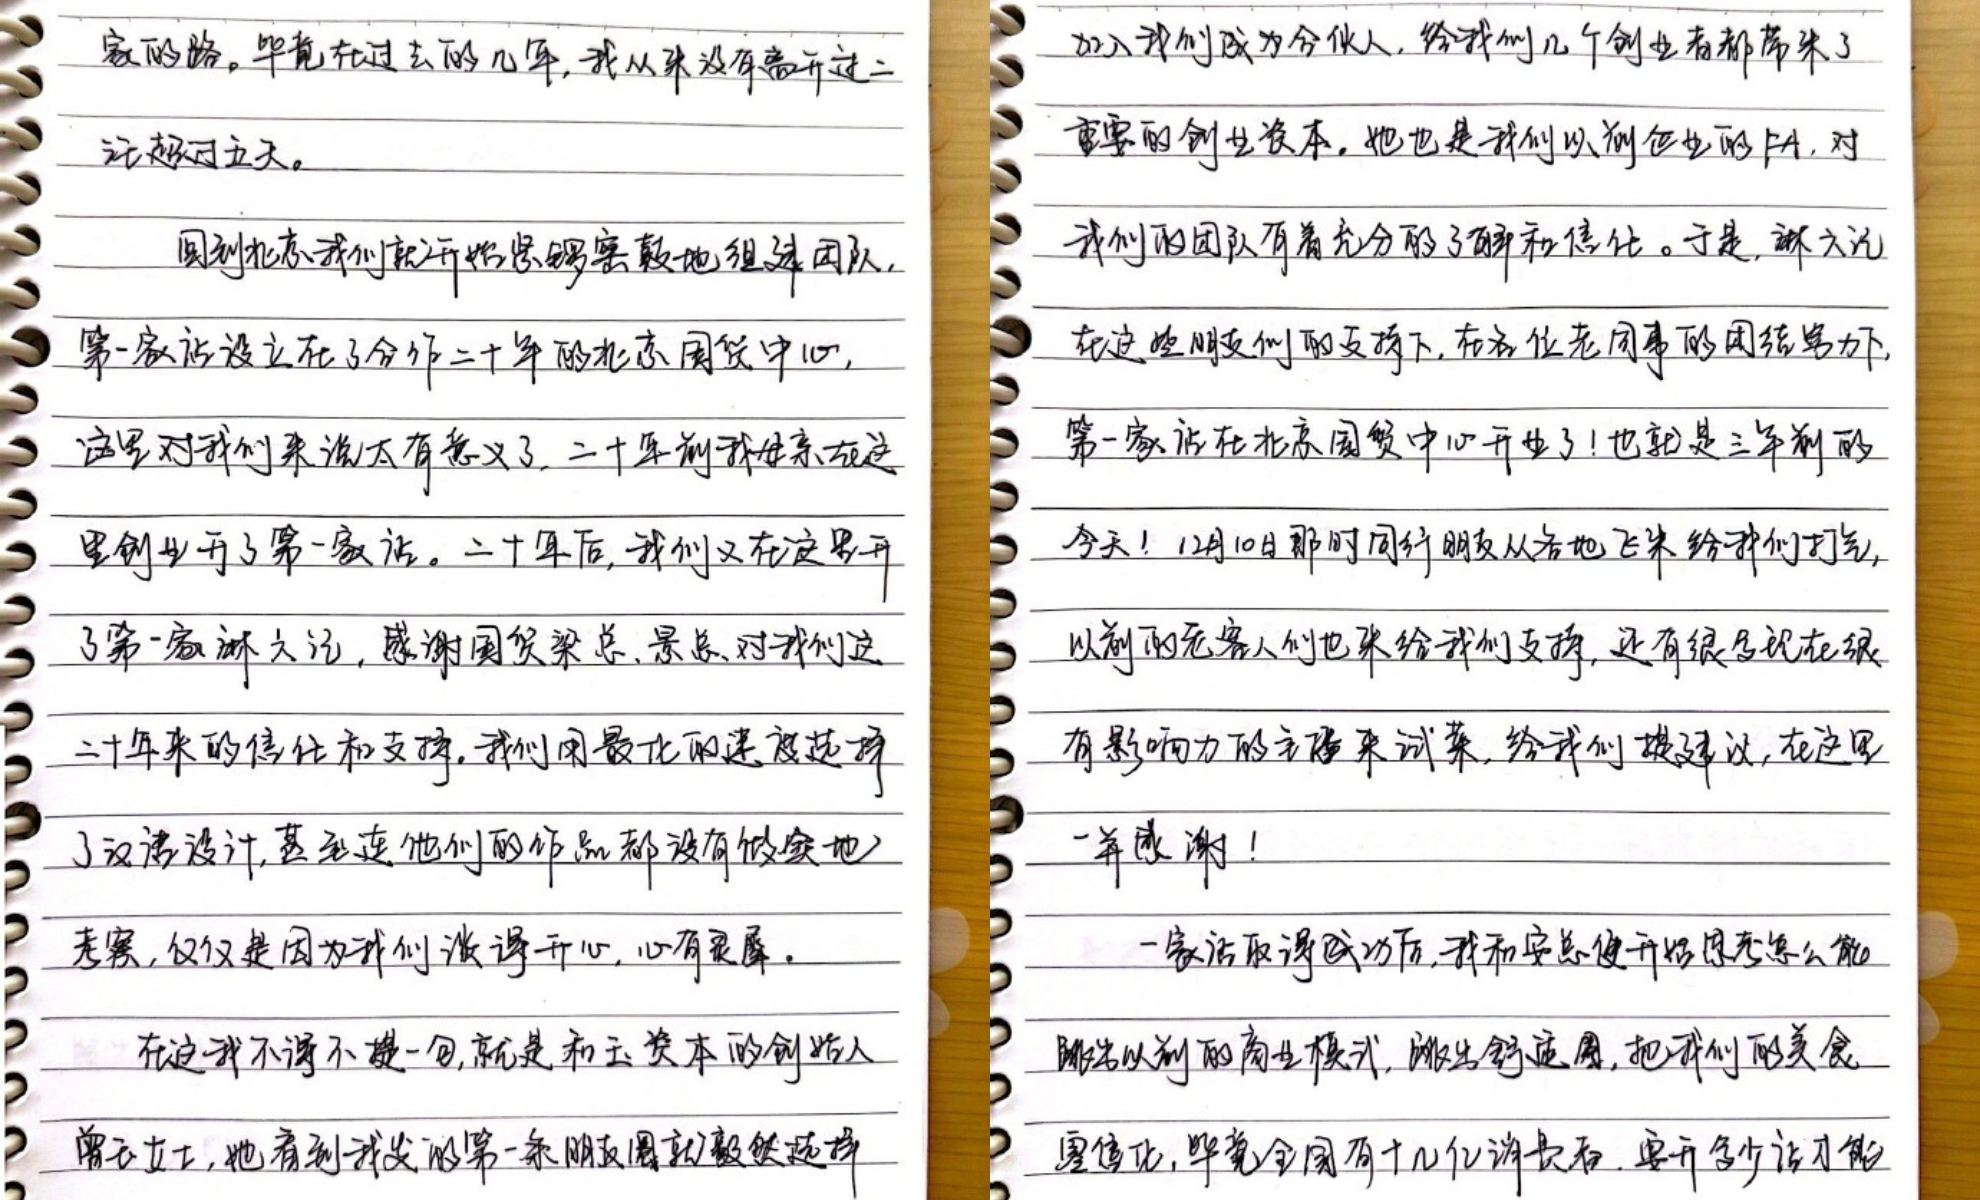 家的路。毕竟在过去的几年,我从来没有离开过二
汪超过五天。
回到北京我们就开始紧锣密鼓地组建团队,
第一家店设立在了合作二十年的北京国贸中心,
这里对我们来说太有意义了,二十年前我母亲在这
里创业开了第一家店。二十年后,我们又在这里开
了第一家渊六记,感谢国贸梁总、景总、对我们这
二十年来的信任和支持。我们用最快的速度选择
了汉诺设计,甚至连他们的作品都没有做实地
考察,仅仅是因为我们谈得开心,心有灵犀。
在这我不得不提一句,就是和玉资本的创始人
曾玉女士,她看到我发的第一条朋友圈就毅然选择
加入我们成为合伙人,给我们几个创业者都带来了
重要的创业资本。她也是我们以前企业的FA,对
我们的团队有着充分的了解和信任。于是,渊六记
在这些朋友们的支持下,在各位老同事的团结努力下,
第一家店在北京国贸中心开业了!也就是三年前的
今天!12月10日那时同行朋友从各地飞来给我们打气,
以前的老客人们也来给我们支持,还有很多现在很
有影响力的主播来试菜,给我们提建议,在这里
一并感谢!
一家店取得成功后,我和安总便开始思考怎么能
跳出以前的商业模式,跳出舒适圈,把我们的美食
零售化,毕竟全国有十几亿消费者,要开多少店才能